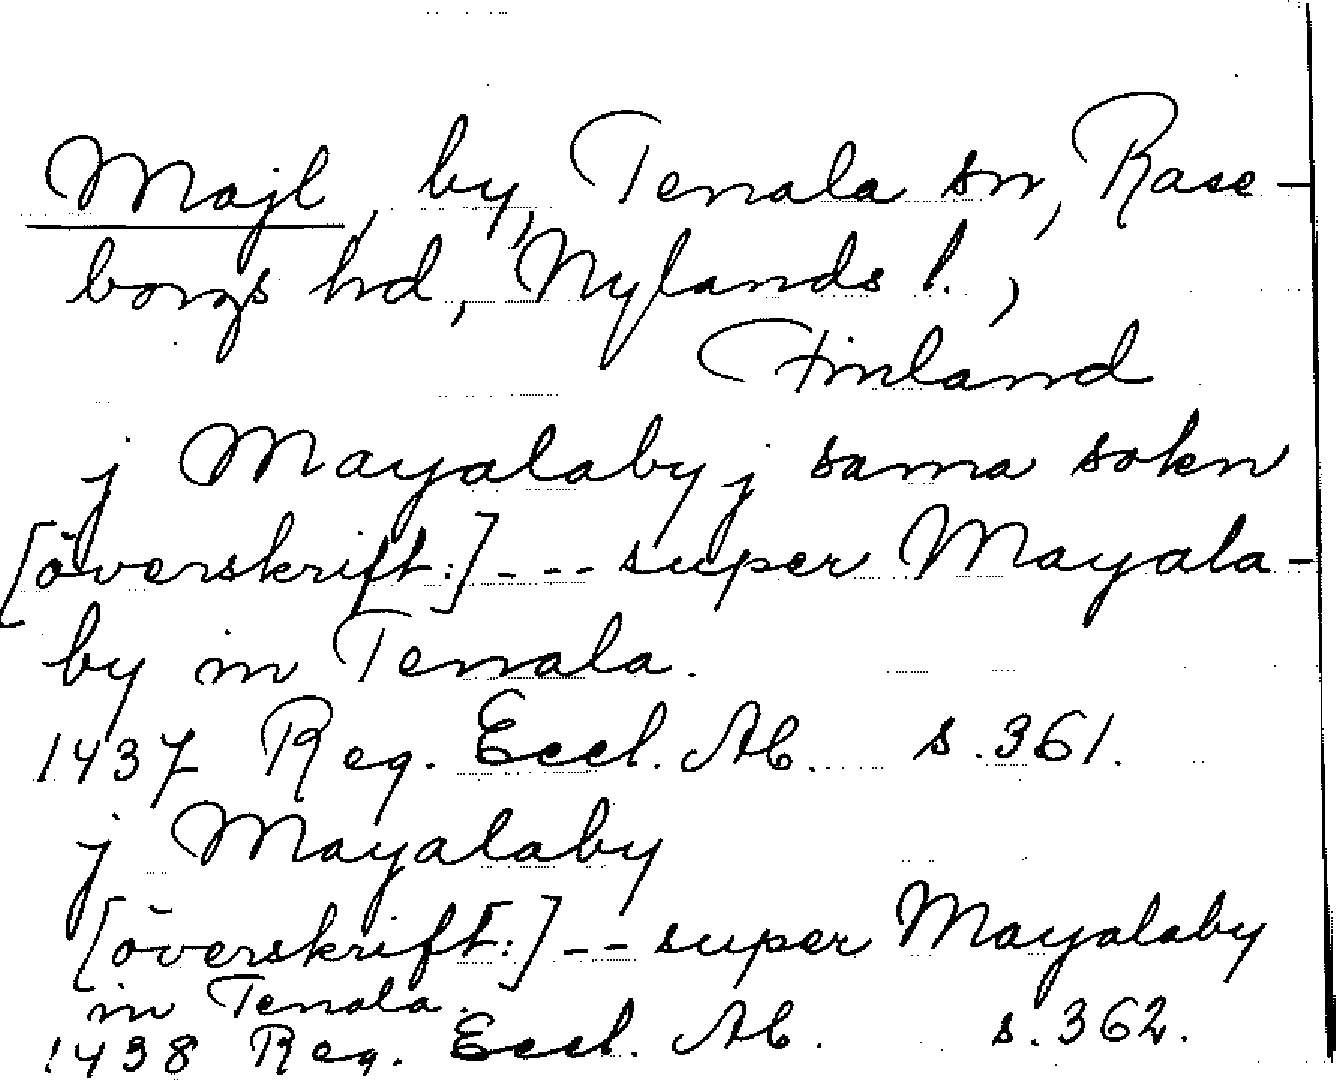 Majl, by, Tenala sn, Rase-
borgs hd, Nylands l.,
Finland
j Mayalaby j sama sokn
[överskrift:] --- super Mayala-
by in Tenala.
1437 Reg. Eccl. Ab. s. 361.
j Mayalaby
[överskrift:] -- super Mayalaby
in Tenala.
1438 Reg. Eccl. Ab. s. 362.